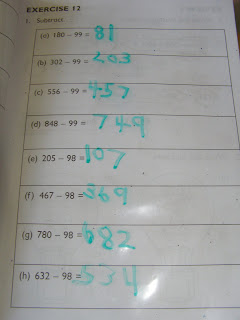 EXERCISE 12
1. Subtract
(a) 180 – 99 = 81
(b) 302 – 99 = 203
(c) 556 – 99 = 457
(d) 848 – 99 = 749
(e) 205 – 98 = 107
(f) 467 – 98 = 369
(g) 780 – 98 = 682
(h) 632 – 98 = 534